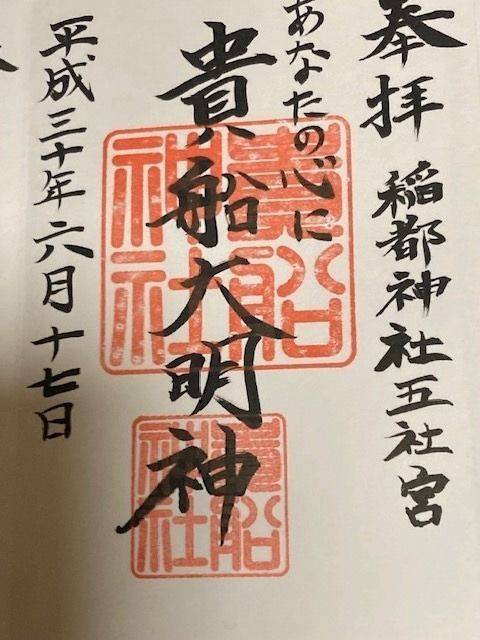 奉拝
稲都神社五社宮
あなたの心に
貴船大明神
貴船
神社
貴船
神社
平成三十年六月十七日